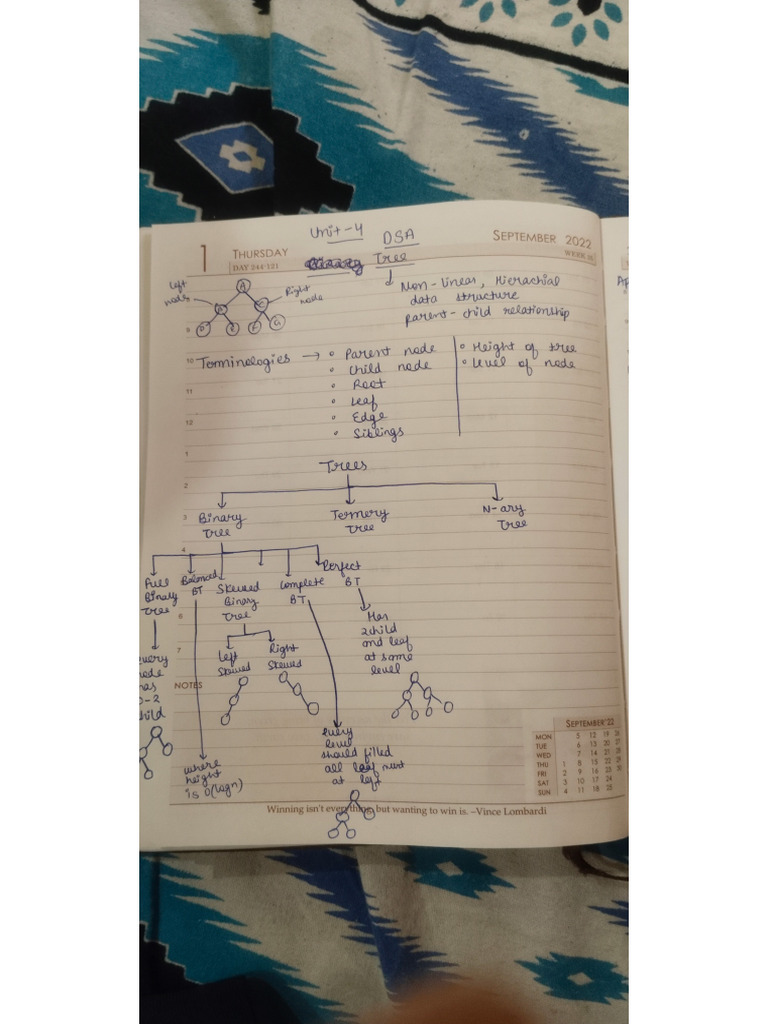 Unit-4 DSA
1 THURSDAY
DAY 244*121
SEPTEMBER 2022
Tree
Non-linear, Hierachial
data structure
parent-child relationship
Left
node
Right
node
A
B C
D E F G
9
10 Terminologies → • Parent node
• Child node
• Root
• Leaf
• Edge
• Siblings
• Height of tree
• Level of node
11
12
1
Trees
2
3
Binary
Tree
Ternery
Tree
N-ary
Tree
4
Full
Binary
Tree
Balanced
BT
Skewed
Binary
Tree
Complete
BT
Perfect
BT
6
7
every
node
has
0-2
child
where
height
is O(logn)
Left
Skewed
Right
Skewed
Every
level
should filled
all leaf must
at left
Has
2child
and leaf
at same
level
NOTES
SEPTEMBER'22
MON 5 12 19 26
TUE 6 13 20 27
WED 7 14 21 28
THU 1 8 15 22 29
FRI 2 9 16 23 30
SAT 3 10 17 24
SUN 4 11 18 25
Winning isn't everything, but wanting to win is. –Vince Lombardi